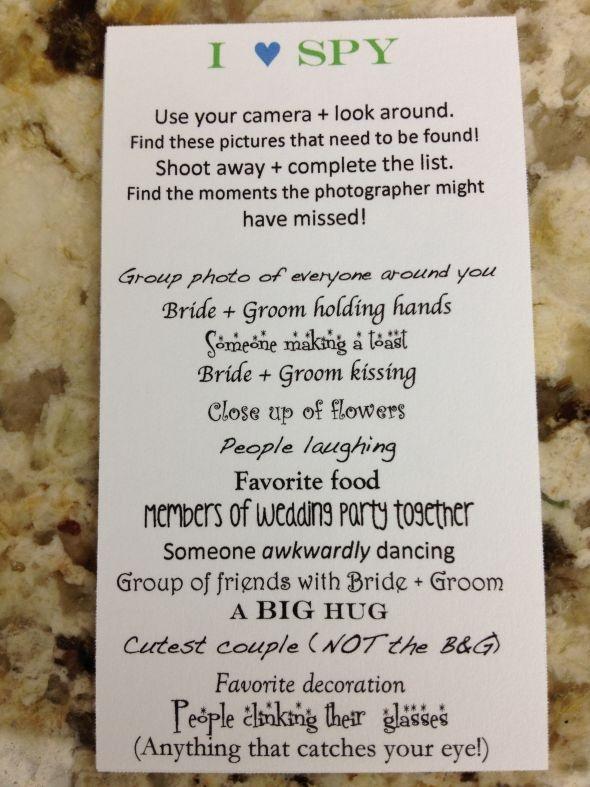 I ♥ SPY
Use your camera + look around.
Find these pictures that need to be found!
Shoot away + complete the list.
Find the moments the photographer might
have missed!
Group photo of everyone around you
Bride + Groom holding hands
Someone making a toast
Bride + Groom kissing
Close up of flowers
People laughing
Favorite food
Members of Wedding Party together
Someone awkwardly dancing
Group of friends with Bride + Groom
A BIG HUG
Cutest couple (NOT the B&G)
Favorite decoration
People clinking their glasses
(Anything that catches your eye!)